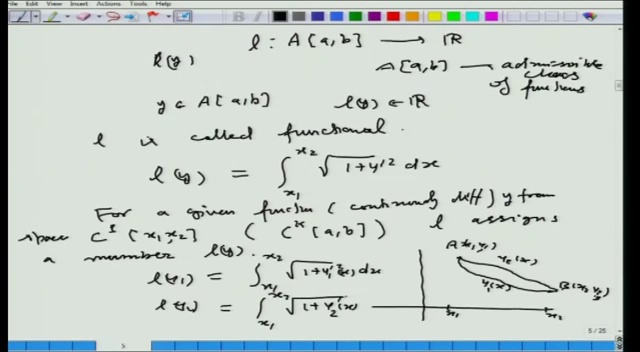 l : A[a,b] ⟶ ℝ
l(y)
A[a,b] — admissible class of functions
y ∈ A[a,b]    l(y) ∈ ℝ
l is called functional.
l(y) = ∫_{x₁}^{x₂} √(1+y'²) dx
For a given function (continuously diff) y from
space C¹[x₁,x₂] (C^k[a,b]) l assigns
a number l(y).
l(y₁) = ∫_{x₁}^{x₂} √(1+y₁'²(x)) dx
l(y₂) = ∫_{x₁}^{x₂} √(1+y₂'²(x))
A(x₁,y₁)
y₂(x)
y₁(x)
B(x₂,y₂)
x₁
x₂
5 / 25